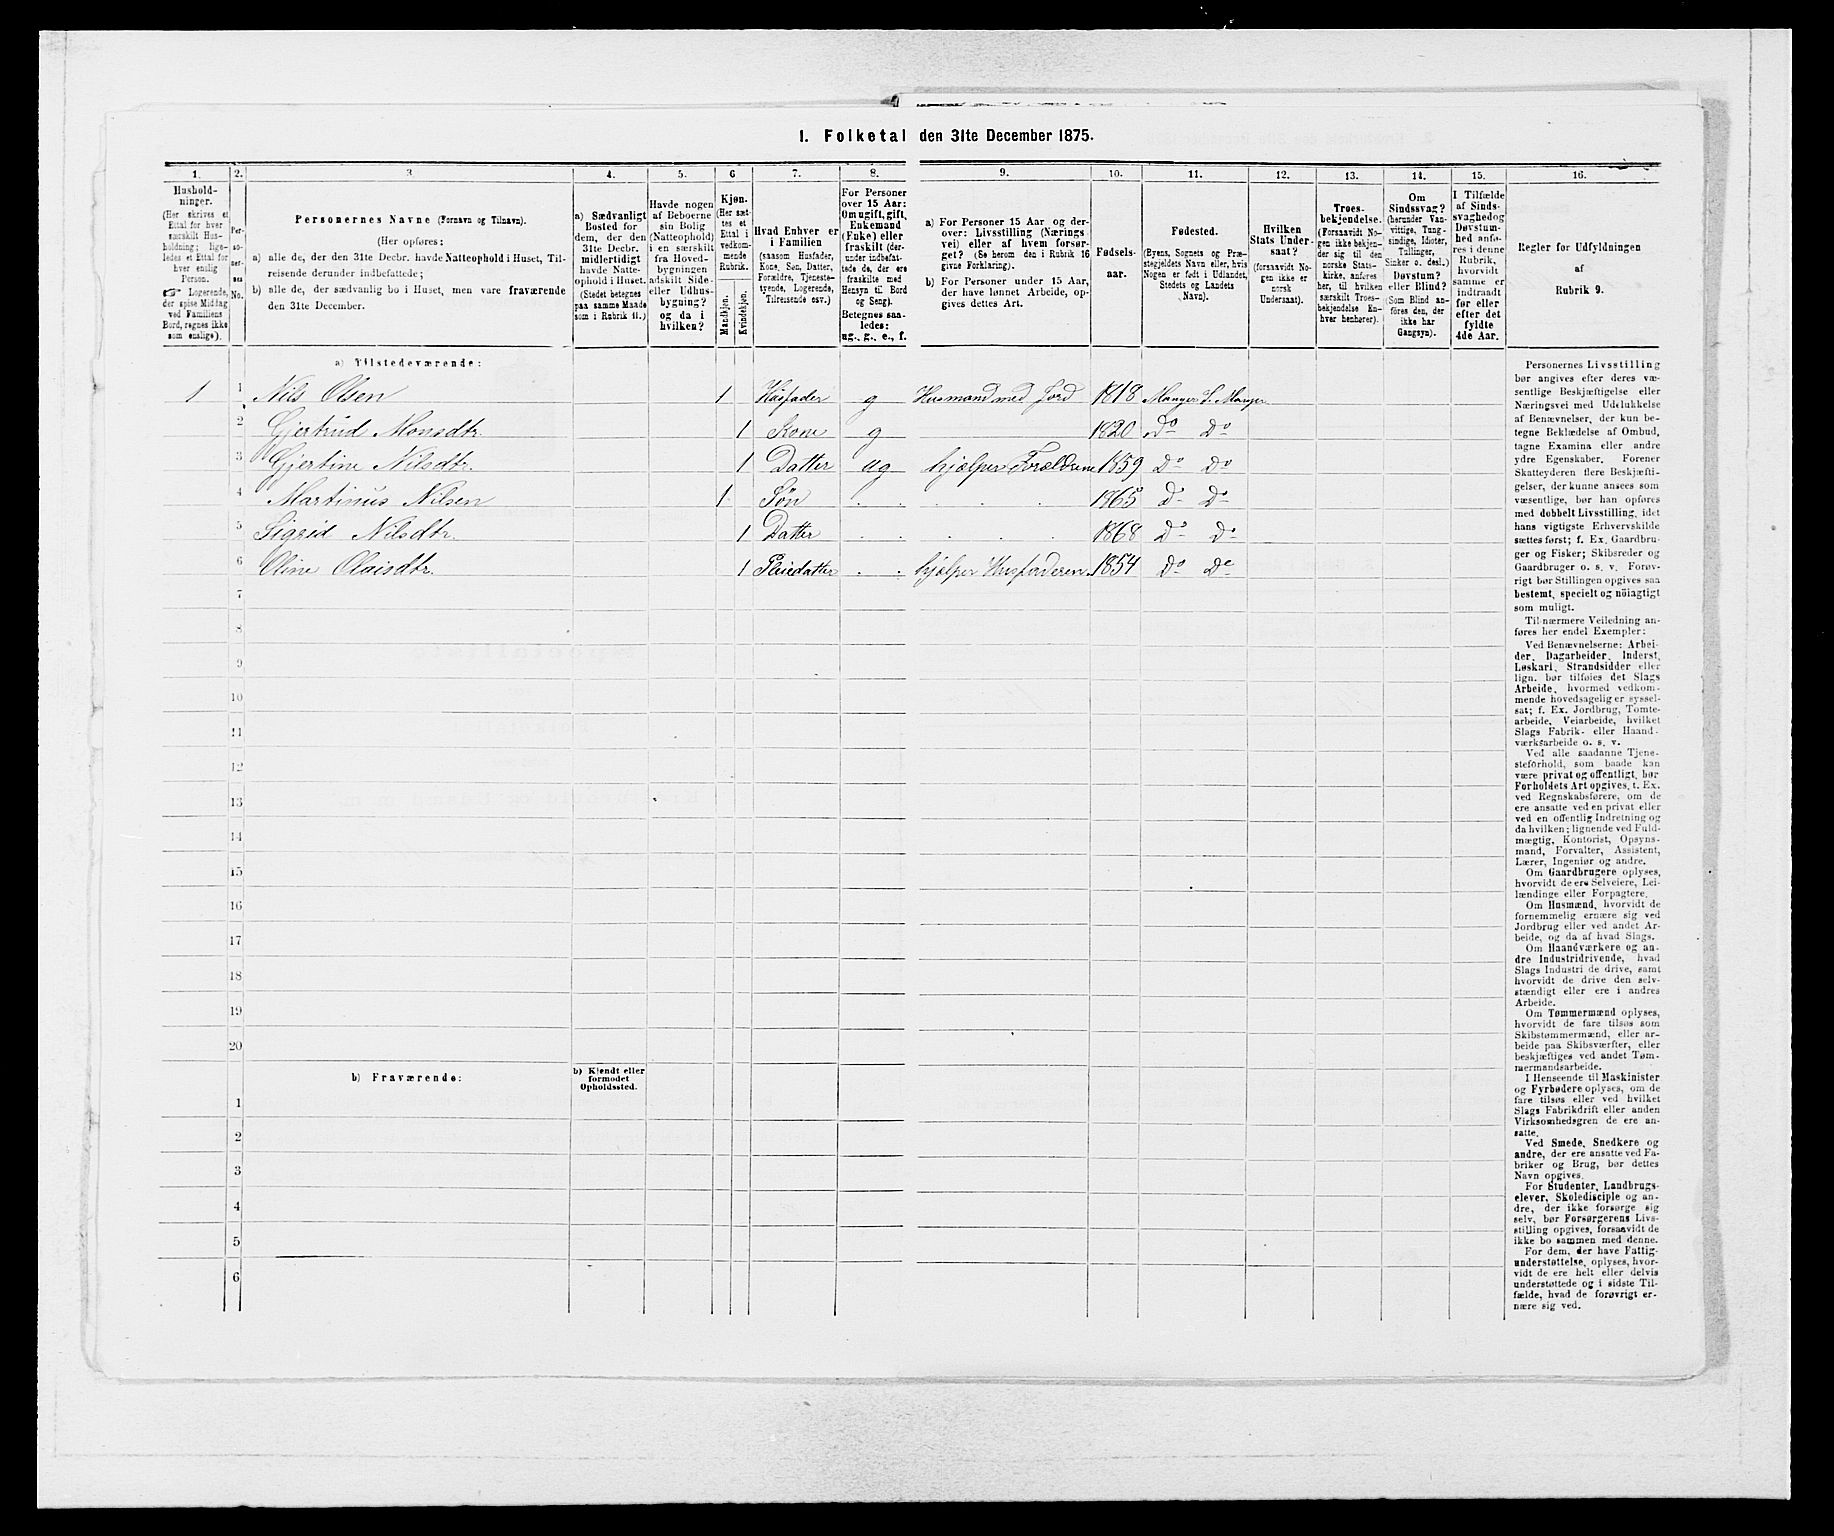 1. Folketal den 31te December 1875.
1. 2. 3. 4. 5. 6 7. 8. 9. 10. 11. 12. 13. 14. 15. 16.
Hushold-
ninger.
(Her skrives et
Ettal for hver
særskilt Hus-
holdning; lige-
ledes et Ettal for
hver enslig
Person.
☞ Logerende,
der spise Middag
ved Familiens
Bord, regnes ikke
som enslige).
Per-
so-
ner-
nes
No.
Personernes Navne (Fornavn og Tilnavn).
(Her opføres:
a) alle de, der den 31te Decbr. havde Natteophold i Huset, Til-
reisende derunder indbefattede;
b) alle de, der sædvanlig bo i Huset, men vare fraværende
den 31te December.
a) Sædvanligt
Bosted for
dem, der den
31te Decbr.
midlertidigt
havde Natte-
ophold i Huset.
(Stedet betegnes
paa samme Maade
som i Rubrik 11.)
Havde nogen
af Beboerne
sin Bolig
(Natteophold)
i en særskilt
fra Hoved-
bygningen
adskilt Side-
eller Udhus-
bygning?
og da i
hvilken?
Kjøn.
(Her sæt-
tes et
Ettal i
vedkom-
mende
Rubrik.
Mandkjøn.
Kvindekjøn.
Hvad Enhver er
i Familien
(saasom Husfader,
Kone, Søn, Datter,
Forældre, Tjeneste-
tyende, Logerende,
Tilreisende osv.)
For Personer
over 15 Aar:
Om ugift, gift,
Enkemand
(Enke) eller
fraskilt (der-
under indbefat-
tede de, der ere
fraskilte med
Hensyn til Bord
og Seng).
Betegnes saa-
ledes:
ug., g., e., f.
a) For Personer 15 Aar og der-
over: Livsstilling (Nærings
vei) eller af hvem forsør-
get? (Se herom den i Rubrik 16
givne Forklaring).
b) For Personer under 15 Aar,
der have lønnet Arbeide, op-
gives dettes Art.
Fødsels-
aar.
Fødested.
(Byens, Sognets og Præ-
stegjeldets Navn eller, hvis
Nogen er født i Udlandet,
Stedets og Landets
Navn).
Hvilken
Stats Under-
saat?
(forsaavidt No-
gen ikke er
norsk
Undersaat).
Troes-
bekjendelse.
(Forsaavidt No-
gen ikke bekjen-
der sig til den
norske Stats-
kirke, anføres
her, til hvilken
særskilt Troes-
bekjendelse En-
hver henhører).
Om
Sindssvag?
(herunder Van-
vittige, Tung-
sindige, Idioter,
Tullinger,
Sinker o. desl.).
Døvstum?
eller Blind?
(Som Blind an-
føres den, der
ikke har
Gangsyn).
I Tilfælde
af Sinds-
svaghedog
Døvstum-
hed anfø-
res i denne
Rubrik,
hvorvidt
samme er
indtraadt
før eller
efter det
fyldte
4de Aar.
Regler før Udfyldningen
af
Rubrik 9.
a) Tilstedeværende:
1 1 Nils Olsen 1 Husfader g Husmand med Jord 1818 Manger S. Manger
2 Gjertrud Monsdtr. 1 Kone g 1820 Do Do
3 Gjertine Nilsdtr. 1 Datter ug hjælper Forældrene 1859 Do Do
4 Martinus Nilsen 1 Søn . . . . . . 1865 Do Do
5 Sigrid Nilsdtr. 1 Datter . . . . . . 1868 Do Do
6 Oline Olaisdtr. 1 Pleiedatter . . hjælper Husfaderen. 1854 Do Do
7
8
9
10
11
12
13
14
15
16
17
18
19
20
b) Fraværende:
b) Kjendt eller
formodet
Opholdssted.
1
2
3
4
5
6
Personernes Livsstilling
bør angives efter deres væ-
sentlige Beskjæftigelse eller
Næringsvei med Udelukkelse
af Benævnelser, der kun be-
tegne Beklædelse af Ombud,
tagne Examina eller andre
ydre Egenskaber. Forener
Skatteyderen flere Beskjæfti-
gelser, der kunne ansees som
væsentlige, bør han opføres
med dobbelt Livsstilling, idet
hans vigtigste Erhvervskilde
sættes først; f. Ex. Gaardbru-
ger og Fisker; Skibsreder og
Gaardbruger o. s. v. Forøv-
rigt bør Stillingen opgives saa
bestemt, specielt og nöiagtigt
som muligt.
Til nærmere Veiledning an-
føres her endel Exempler:
Ved Benævnelserne: Arbei-
der, Dagarbeider, Inderst,
Løskarl, Strandsidder eller
lign. bør tilføies det Slags
Arbeide, hvormed vedkom-
mende hovedsagelig er syssel-
sat; f. Ex. Jordbrug, Tomte-
arbeide, Veiarbeide, hvilket
Slags Fabrik- eller Haand-
værksarbeide o. s. v.
Ved alle saadanne Tjene-
steforhold, som baade kan
være privat og offentligt, bør
Forholdets Art opgives, t. Ex.
ved Regnskabsførere, om de
ere ansatte ved en privat eller
ved en offentlig Indretning og
da hvilken; lignende ved Fuld-
mægtig, Kontorist, Opsyns-
mand, Forvalter, Assistent,
Lærer, Ingeniør og andre.
Om Gaardbrugere oplyses,
hvorvidt de ere Selveiere, Lei-
lændinge eller Forpagtere.
Om Husmænd, hvorvidt de
fornemmelig ernære sig ved
Jordbrug eller ved andet Ar-
beide, og da af hvad Slags.
Om Haandværkere og an-
dre Industridrivende, hvad
Slags Industri de drive, samt
hvorvidt de drive den selv-
stændigt eller ere i andres
Arbeide.
Om Tømmermænd oplyses,
hvorvidt de fare tilsøs som
Skibstømmermænd, eller ar-
beide paa Skibsværfter, eller
beskjæftiges ved andet Tøm-
mermandsarbeide.
I Henseende til Maskinister
og Fyrbødere oplyses, om de
fare tilsøs eller ved hvilket
Slags Fabrikdrift eller anden
Virksomhedsgren de ere an-
satte.
Ved Smede, Snedkere og
andre, der ere ansatte ved Fa-
briker og Brug, bør dettes
Navn opgives.
For Studenter, Landbrugs-
elever, Skoledisciple og an-
dre, der ikke forsørge sig
selv, bør Forsørgerens Livs-
stilling opgives, forsaavidt de
ikke bo sammen med denne.
For dem, der have Fattig-
understøttelse, oplyses, hvor-
vidt de ere helt eller delvis
understøttede og i sidste Til-
fælde, hvad de forøvrigt er-
nære sig ved.